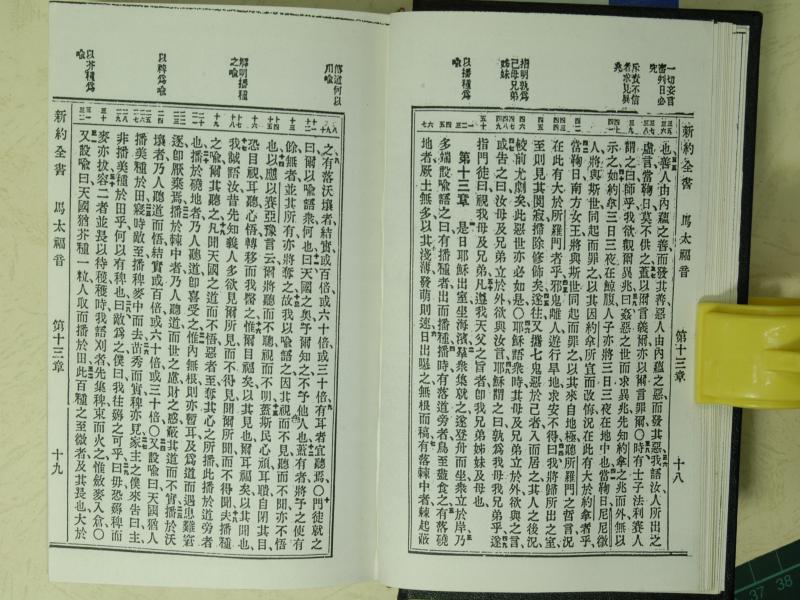 新約全書 馬太福音 第十三章 十八
一切妄言
審判日必
究
斥妄不信
者求見異
兆
指明孰爲
己母兄弟
姊妹
以播種爲
喩
也善人由內蘊之善而發其善惡人由內蘊之惡而發其惡我語汝人所出之
虛言當鞫日莫不供之蓋以爾言義爾亦以爾言罪爾〇時有士子法利賽人
謂之曰師乎我欲觀爾異兆曰姦惡之世而求異兆先知約拿之兆而外無以
示之如約拿三日三夜在鯨腹人子亦將三日三夜在地中也當鞫日尼尼微
人將與斯世同起而罪之以其因約拿所宣而改悔況在此有大於約拿者乎
當鞫日南方女王將與斯世同起而罪之以其來自地極聽所羅門之哲言況
在此有大於所羅門者乎邪鬼離人遊行旱地求安不得曰我將歸所出之室
至則見其閴寂掃除修飾矣遂往又攜七鬼惡於己者入而居之其人之後況
較前尤劇矣此惡世亦必如是〇耶穌語衆時其母及兄弟立於外欲與之言
或吿之曰爾母及兄弟立於外欲與汝言耶穌謂之曰孰爲我母我兄弟乎遂
指門徒曰視我母及兄弟凡遵我天父之旨者卽我兄弟姊妹及母也
第十三章 是日耶穌出室坐海濱羣衆集就之遂登舟而坐衆立於岸乃
多端設喩語之曰有播種者出而播種播時有落道旁者鳥至盡食之有落磽
地者厥土無多以其淺薄發萌則速日出曝之無根而稿有落棘中者棘起蔽
落道何以
用喩
解明播種
之喩
以稗爲喩
以芥種爲
喩
之有落沃壤者結實或百倍或六十倍或三十倍有耳者宜聽焉〇門徒就之
曰爾以喩語衆何也曰天國之奧予爾知之不予他人也蓋有者將予之使有
餘無者並其所有亦將奪之故我以喩語之因其視而不見聽而不聞亦不悟
也以應以賽亞豫言云爾將聽而不聰視而不明蓋斯民心頑耳聵自閉其目
恐目視耳聽心悟轉移而我醫之惟爾目福矣以其見也爾耳福矣以其聞也
我誠語汝昔先知義人多欲見爾所見而不得見聞爾所聞而不得聞夫播種
之喩爾其聽之凡聞天國之道而不悟惡者至奪其心之所播此播於道旁者
也播於磽地者乃人聽道卽喜受之惟內無根則亦暫耳及爲道而遇患難窘
逐卽厭棄焉播於棘中者乃人聽道而世之慮財之惑蔽其道而不實播於沃
壤者乃人聽道而悟結實或百倍或六十倍或三十倍〇又設喩曰天國猶人
播美種於田寢時敵至播稗麥中而去苗秀而實稗亦見家主之僕來吿曰主
非播美種於田乎何以有稗也曰敵爲之僕曰我往薅之可乎曰毋恐薅稗而
麥亦拔容二者並長以待穫穫時我語刈者先集稗束而火之惟斂麥入倉〇
又設喩曰天國猶芥種一粒人取而播於田此百種之至微者及其長也大於
新約全書 馬太福音 第十三章 十九
37 38